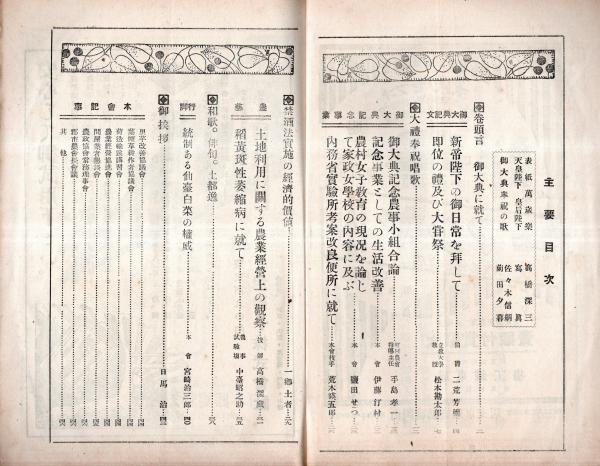 主要目次
表紙萬歳樂 高橋深三
天皇陛下 皇后陛下 寫眞
御大典奉祝の歌 佐々木信綱
前田夕暮
卷頭言 御大典に就て 二
御大典記文
新帝陛下の御日常を拜して 二荒芳徳
即位の禮及び大甞祭 松本勘太郎 七
大禮奉祝唱歌
御大典記念事業
御大典記念農事小組合論 手島孝一
記念事業としての生活改善 本會 伊藤汀村
農村女子教育の現況を論じて家政女學校の内容に及ぶ 本會 鹽田せつ
内務省實驗所考案改良便所に就て 本會技手 荒木
禁酒法實施の經濟的價値 一郷土者
土地利用に關する農業經營上の觀察 技師 高橋
稻黄斑性萎縮病に就て 農事試驗場 中臺昭之助
和歌。俳句。土都逸
統制ある仙臺白菜の權威 本會 宮崎治三郎
御挨拶 馬治
本會記事
里芋改善協議會
葉煙草耕作者協議會
荷造輸送講習會
農業經營協進會
問屋業者懇談會
農政協會常務理事會
郡市農會長會議
其他